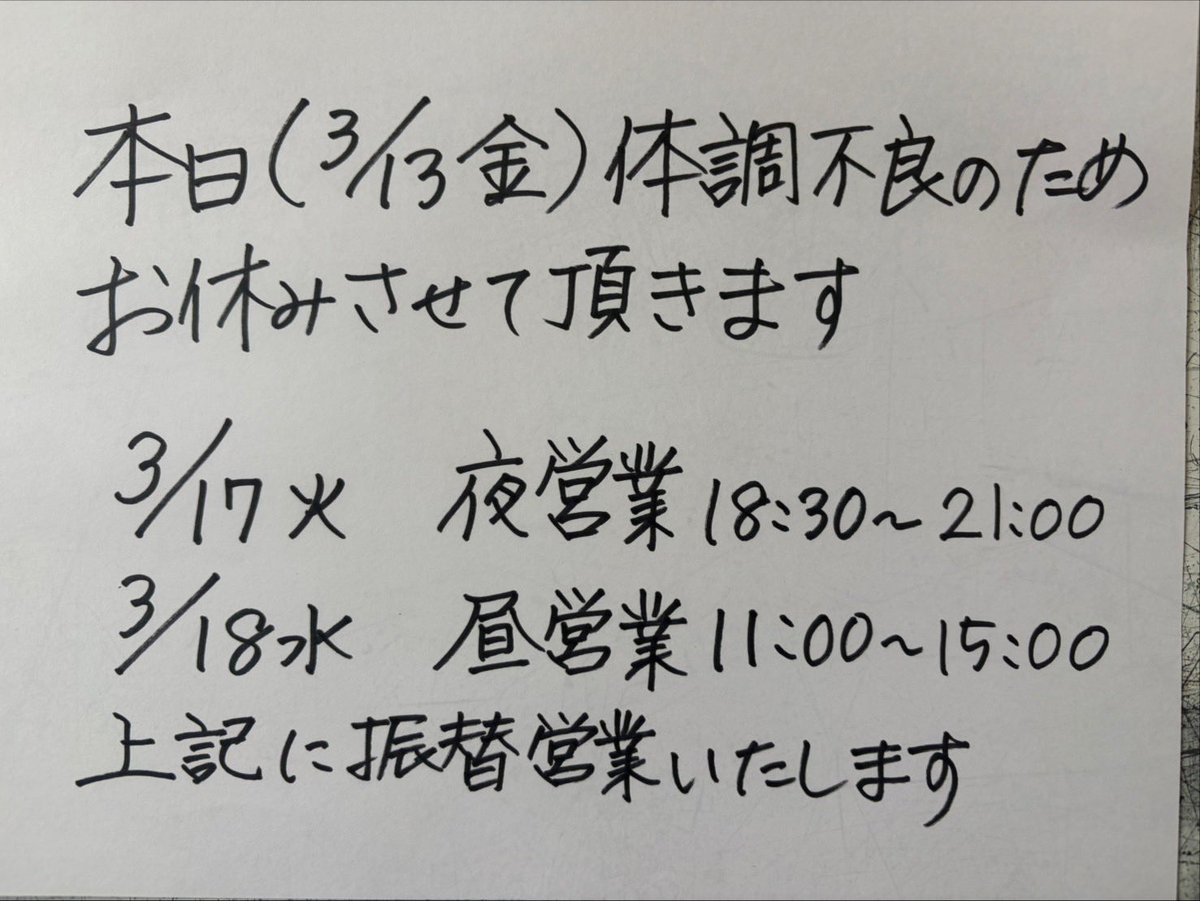 本日(3/13金)体調不良のため
お休みさせて頂きます
3/17火 夜営業18:30~21:00
3/18水 昼営業11:00~15:00
上記に振替営業いたします